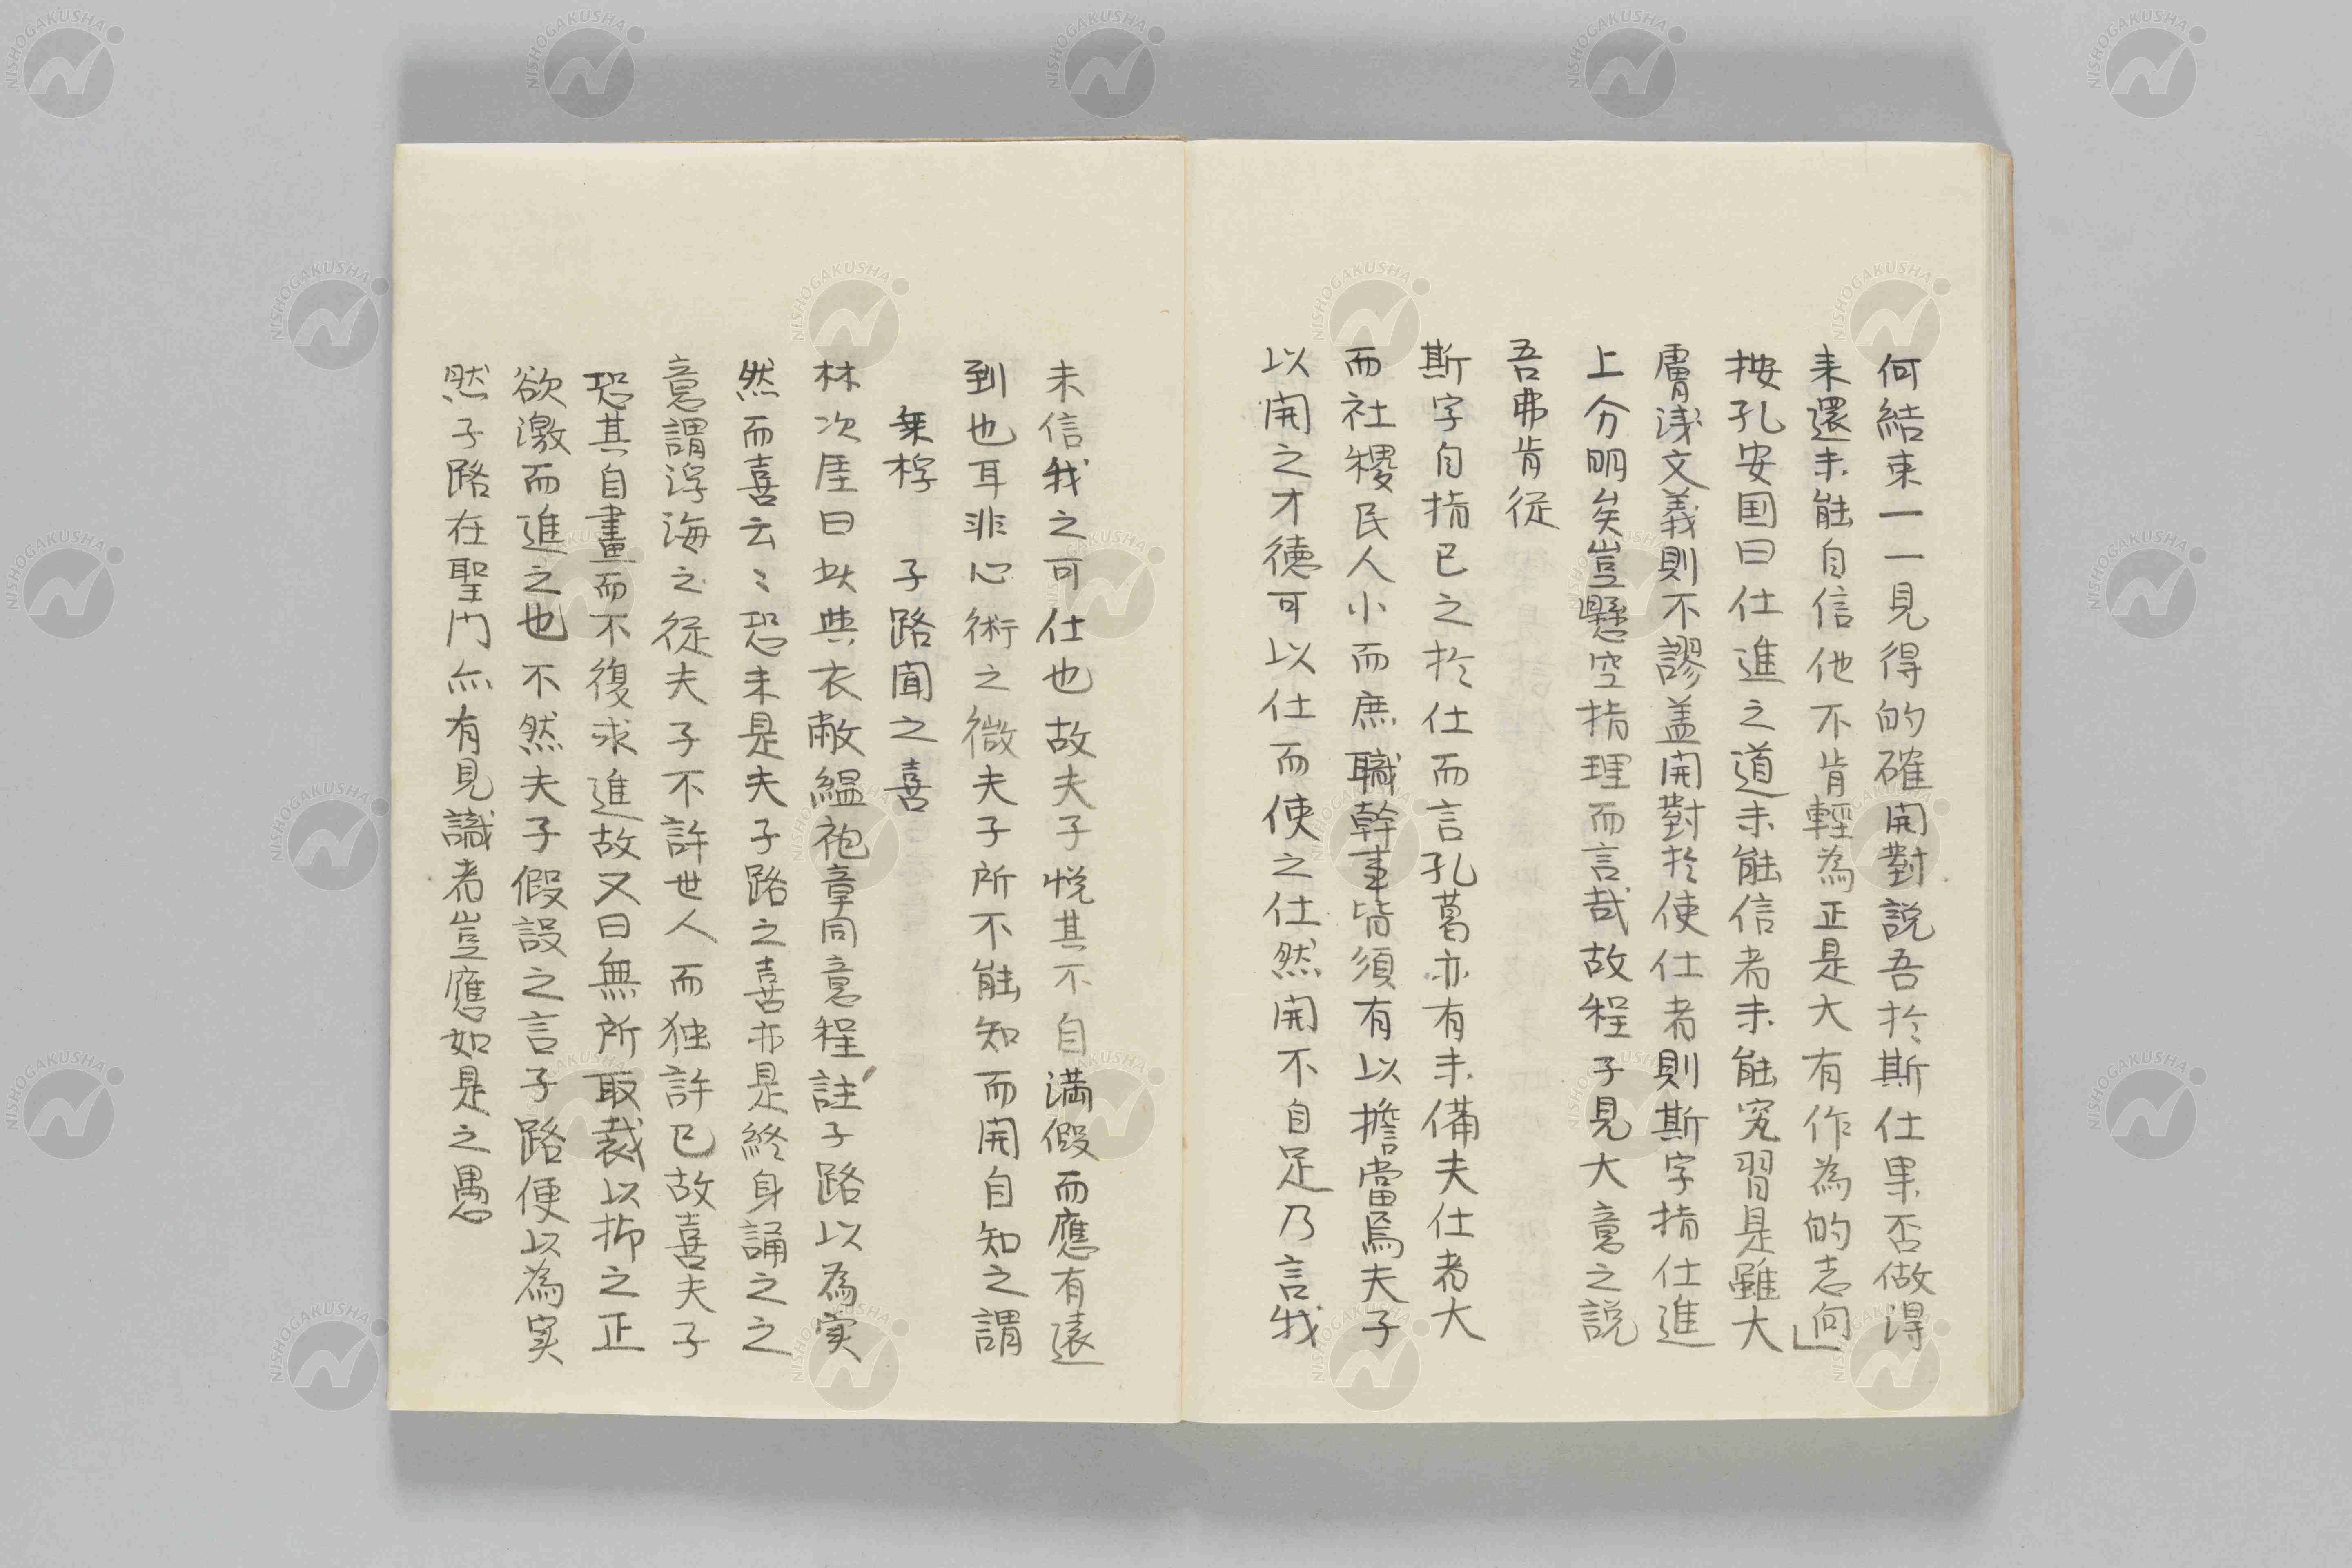 何結束一一見得的確開對説吾於斯仕果否做得
来還未能自信他不肯輕為正是大有作為的志向
按孔安国曰仕進之道未能信者未能究習是雖大
膚浅文義則不謬盖開對於使仕者則斯字指仕進
上分明矣豈懸空指理而言哉故程子見大意之説
吾弗肯従
斯字自指已之於仕而言孔葛亦有未備夫仕者大
而社稷民人小而庶職幹事皆須有以擔當焉夫子
以開之才德可以仕而使之仕然開不自足乃言我
未信我之可仕也故夫子悦其不自満假而應有遠
到也耳非心術之微夫子所不能知而開自知之謂
乗桴　子路聞之喜
林次厓曰此與衣敝縕袍章同意程註子路以為実
然而喜云々恐未是夫子路之喜亦是終身誦之之
意謂浮海之從夫子不許世人而独許已故喜夫子
恐其自畫而不復求進故又曰無所取裁以抑之正
欲激而進之也不然夫子假設之言子路便以為実
然子路在聖門尓有見識者豈應如是之愚
NISHOGAKUSHA